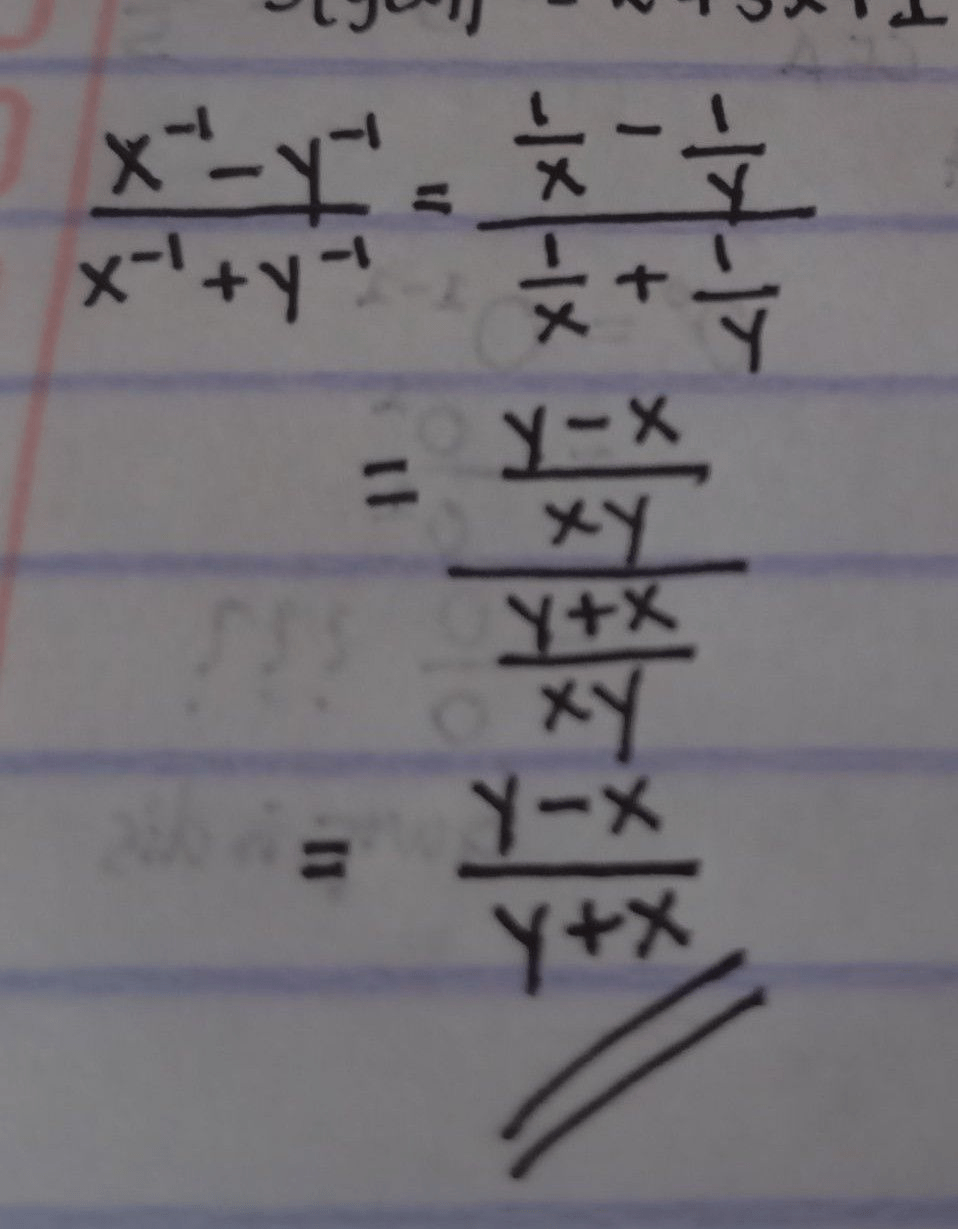 x⁻¹ - y⁻¹ / x⁻¹ + y⁻¹ = 1/x - 1/y / 1/x + 1/y
= y - x / xy / y + x / xy
= y - x / y + x